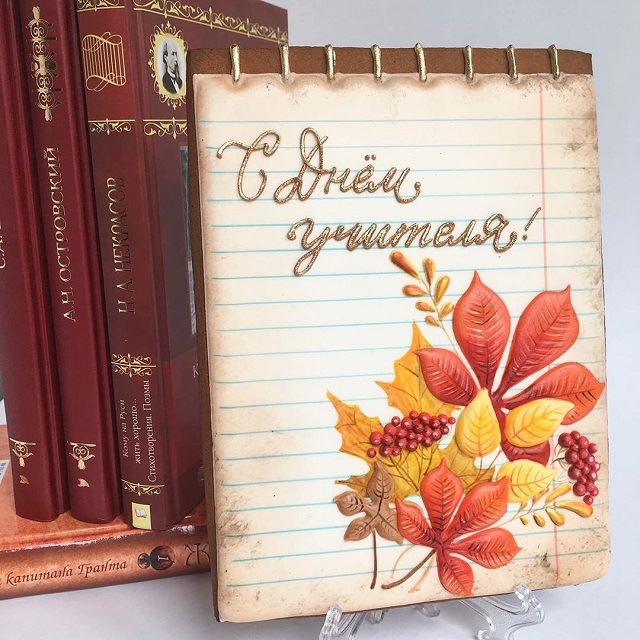 С Днём
учителя!
А.Н. ОСТРОВСКИЙ
Н.А. НЕКРАСОВ
Кому на Руси
жить хорошо...
Стихотворения. Поэмы
капитана Гранта